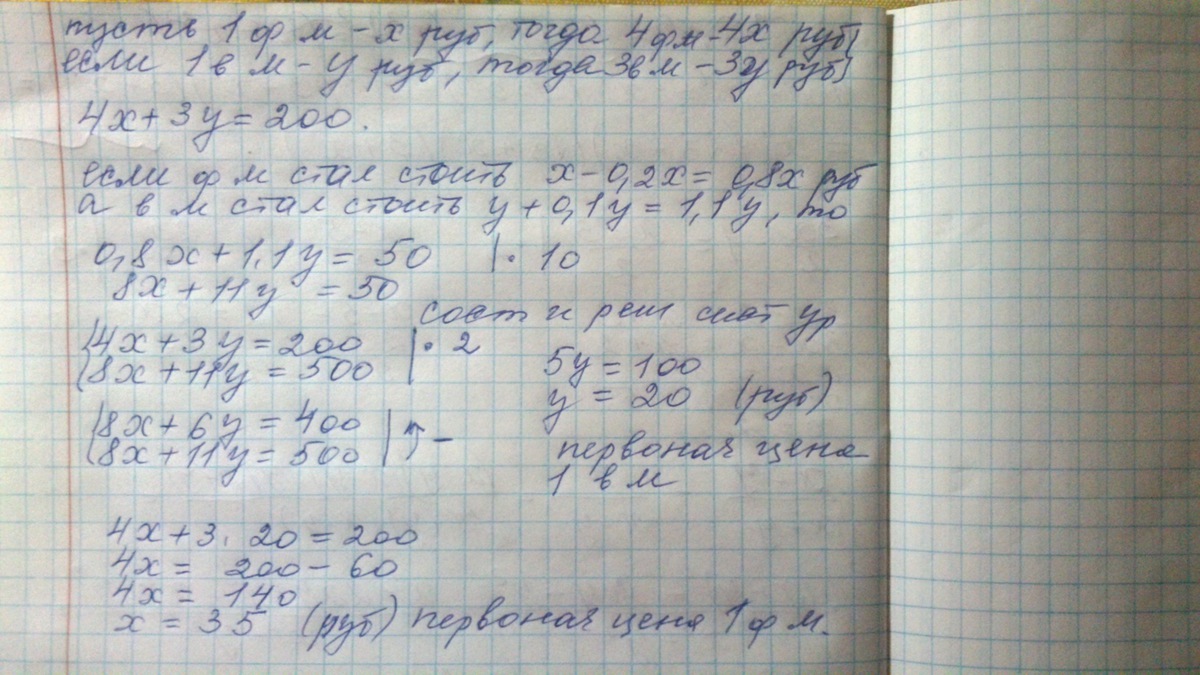 пусть 1 ф м - х руб, тогда 4 фм - 4х руб,
если 1 в м - у руб, тогда 3 в м - 3у руб,
4х + 3у = 200.
если ф м стал стоить х - 0,2х = 0,8х руб
а в м стал стоить у + 0,1у = 1,1у, то
0,8х + 1,1у = 50 | · 10
8х + 11у = 50
сост и реш сист ур
{4х + 3у = 200 | · 2
{8х + 11у = 500
{8х + 6у = 400
{8х + 11у = 500 | ↑ -
5у = 100
у = 20 (руб)
первонач цена
1 в м
4х + 3 · 20 = 200
4х = 200 - 60
4х = 140
х = 35 (руб) первонач цена 1 ф м.